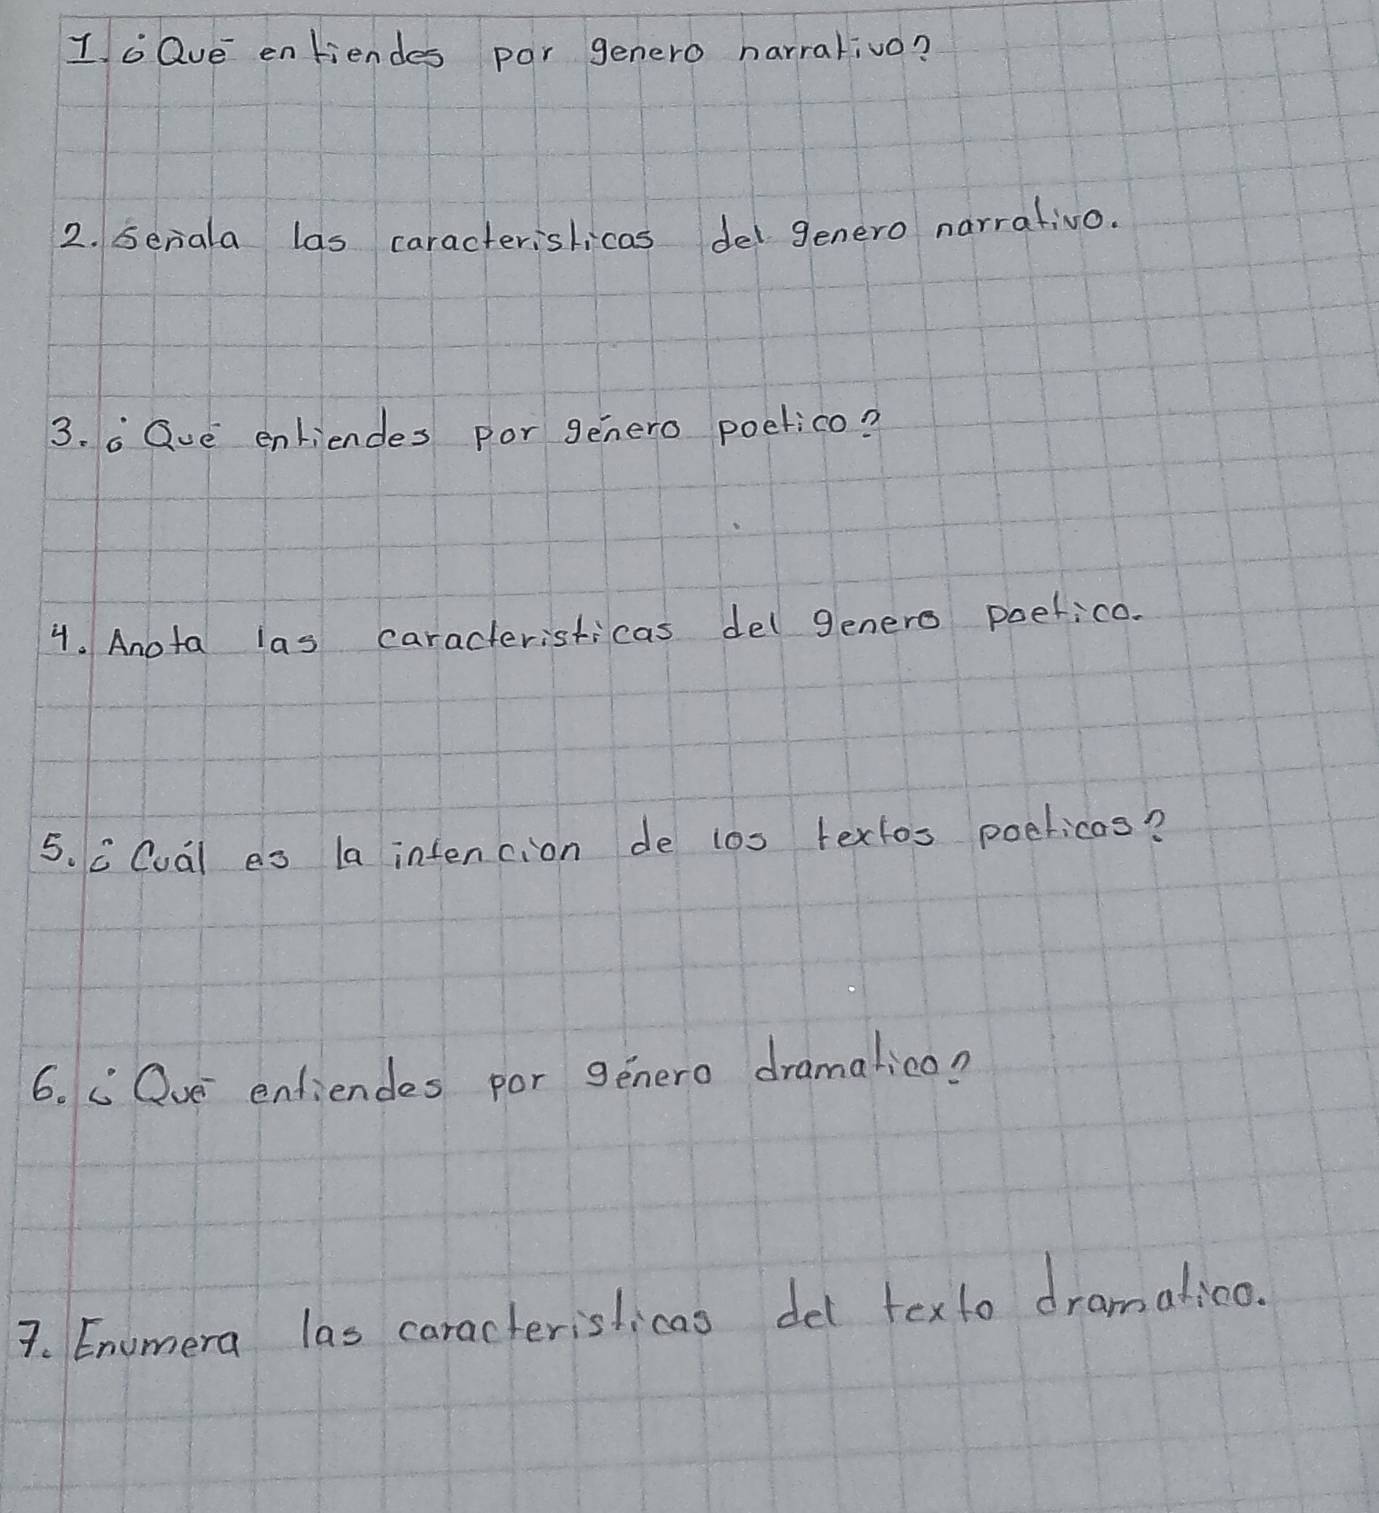 1. ¿Qué entiendes por genero narrativo?
2. Señala las caracteristicas del genero narrativo.
3. ¿Qué entiendes por género poetico?
4. Anota las caracteristicas del genero poetico.
5. ¿Cuál es la intencion de los textos poeticos?
6. ¿Qué entiendes por género dramatico?
7. Enumera las caracteristicas del texto dramatico.